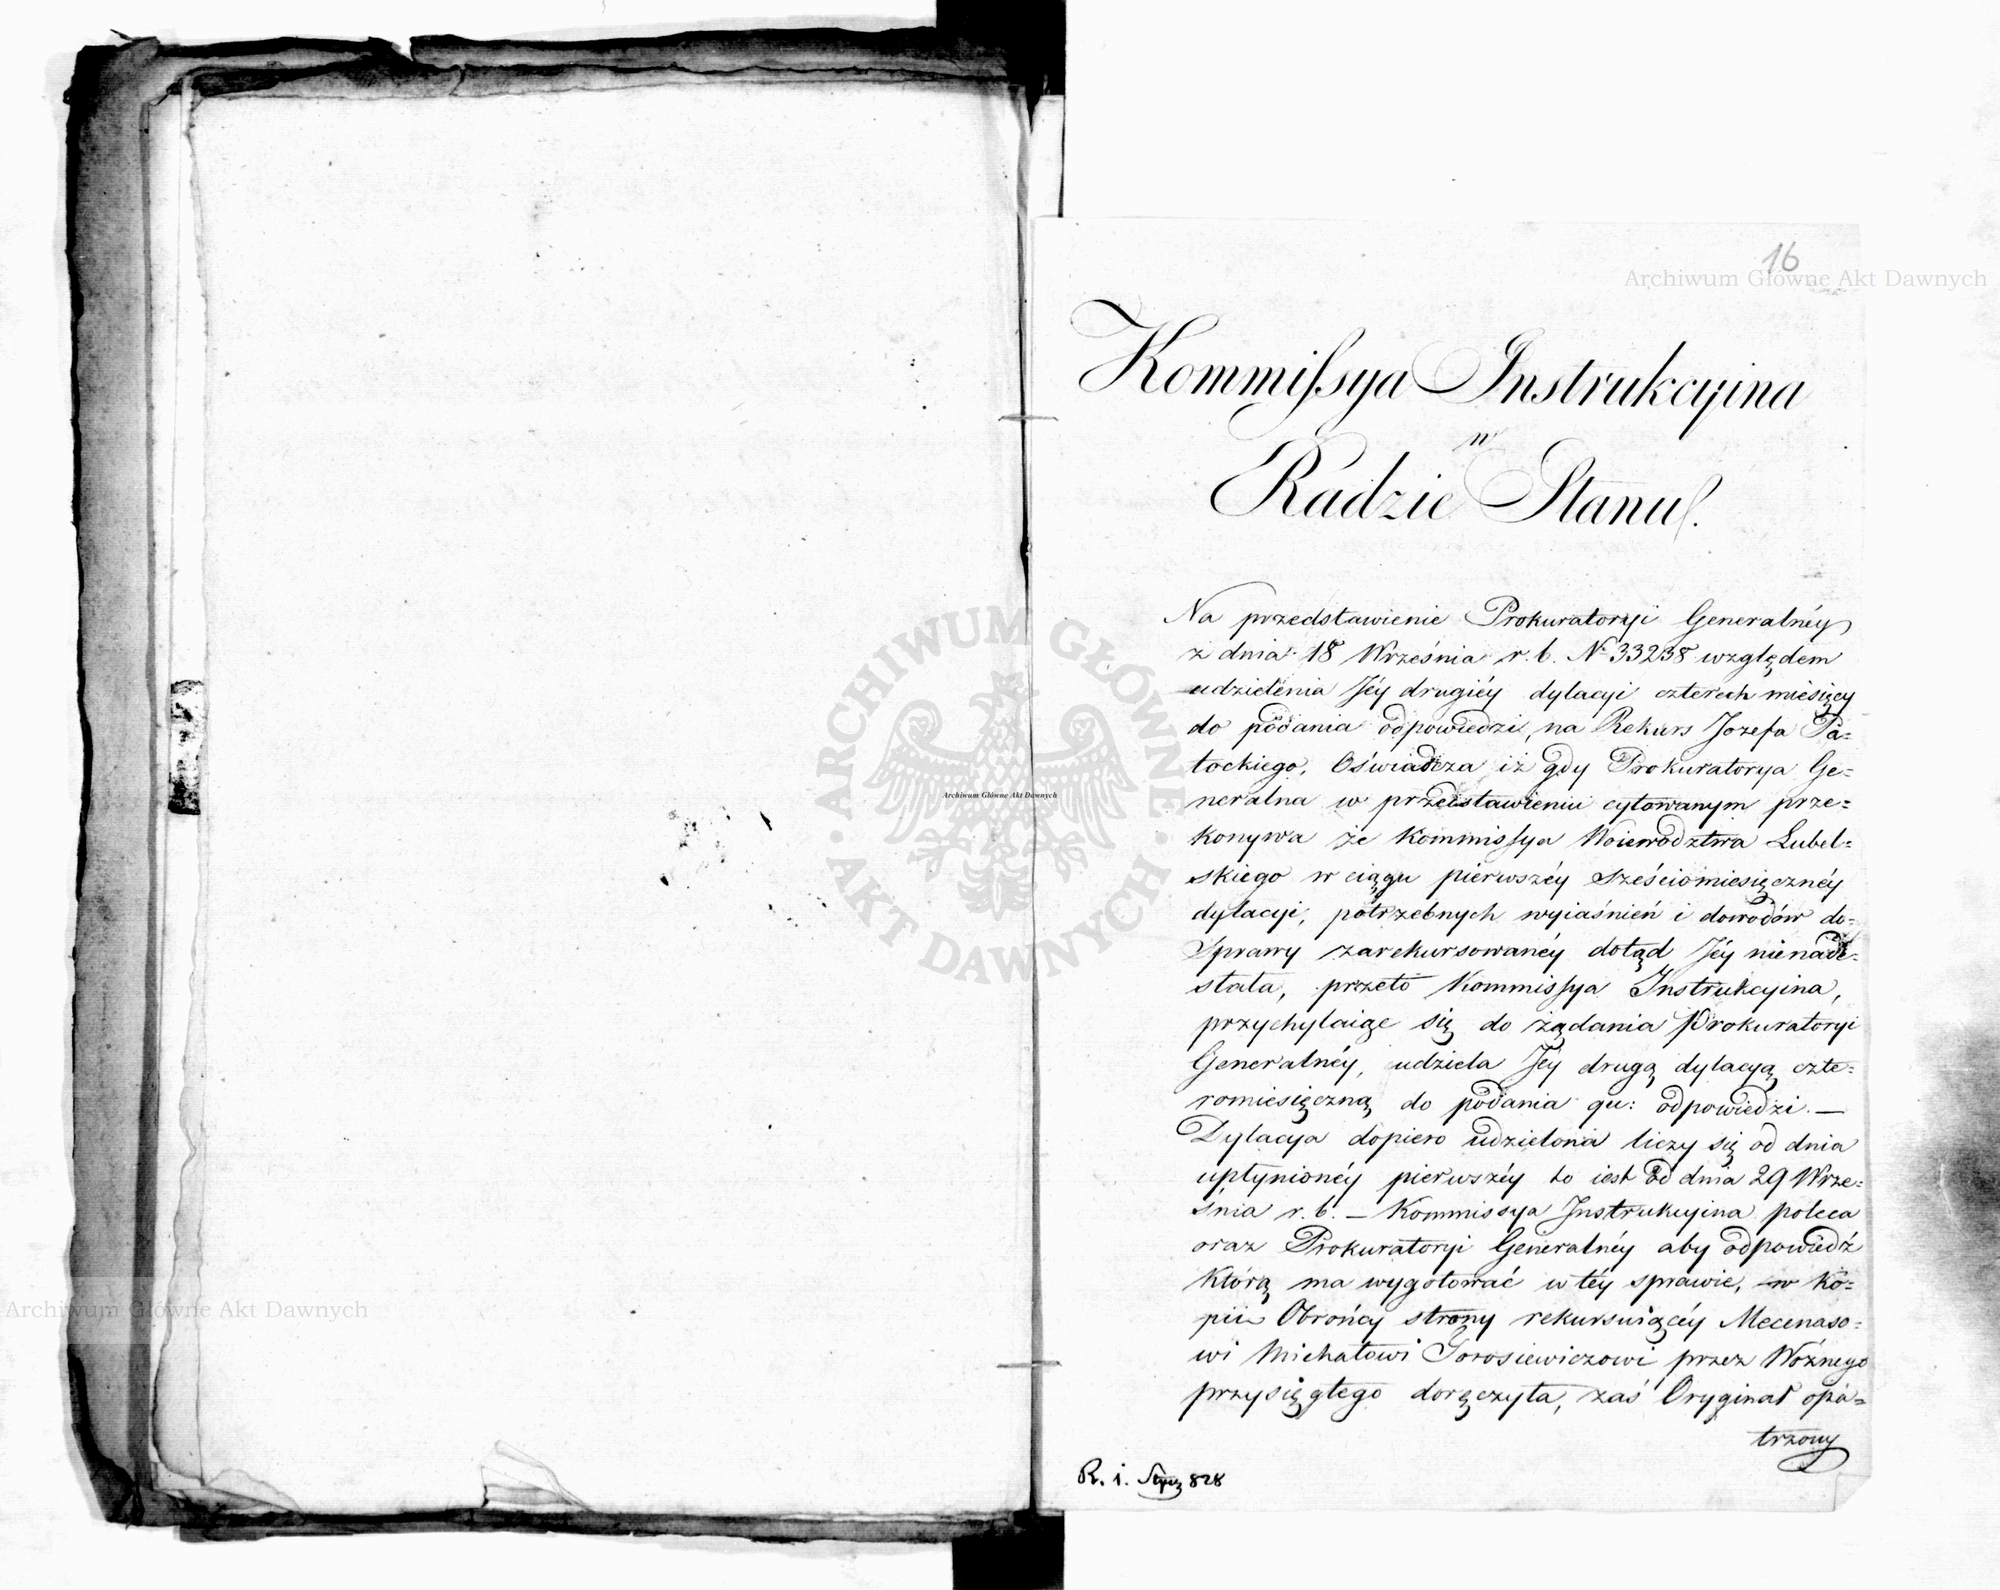 16
Archiwum Główne Akt Dawnych
Kommissya Instrukcyina
w
Radzie Stanu.
Na przedstawienie Prokuratoryi Generalnéy
z dnia 18 Września r. b. Nº 33238 względem
udzielenia Jéy drugiéy dylacyi czterech miesięcy
do podania odpowiedzi, na Rekurs Jozefa Pa=
tockiego, Oświadcza iż gdy Prokuratorya Ge=
neralna w przedstawieniu cytowanym prze=
konywa że Kommissya Woiewodztwa Lubel=
skiego w ciągu pierwszéy sześciomiesięcznéy
dylacyi, potrzebnych wyiaśnień i dowodów do=
Sprawy zarekursowanéy dotąd Jéy nienade=
słała, przeto Kommissya Instrukcyina,
przychylaiąc się do żądania Prokuratoryi
Generalnéy, udziela Jéy drugą dylacyą czte=
romiesięczną do podania qu: odpowiedzi. —
Dylacya dopiero udzielona liczy się od dnia
upłynionéy pierwszéy to iest od dnia 29 Wrze=
śnia r. b. — Kommissya Instrukcyina poleca
oraz Prokuratoryi Generalnéy aby odpowiedź
którą ma wygotować w téy sprawie, w Ko=
pii Obrońcy strony rekursuiącéy Mecenaso=
wi Michałowi Torosiewiczowi przez Woźnego
przysięgłego doręczyła, zaś Oryginał opa=
trzony
R. 1. Stycz 828
ARCHIWUM GŁÓWNE · AKT DAWNYCH ·
Archiwum Główne Akt Dawnych
Archiwum Główne Akt Dawnych